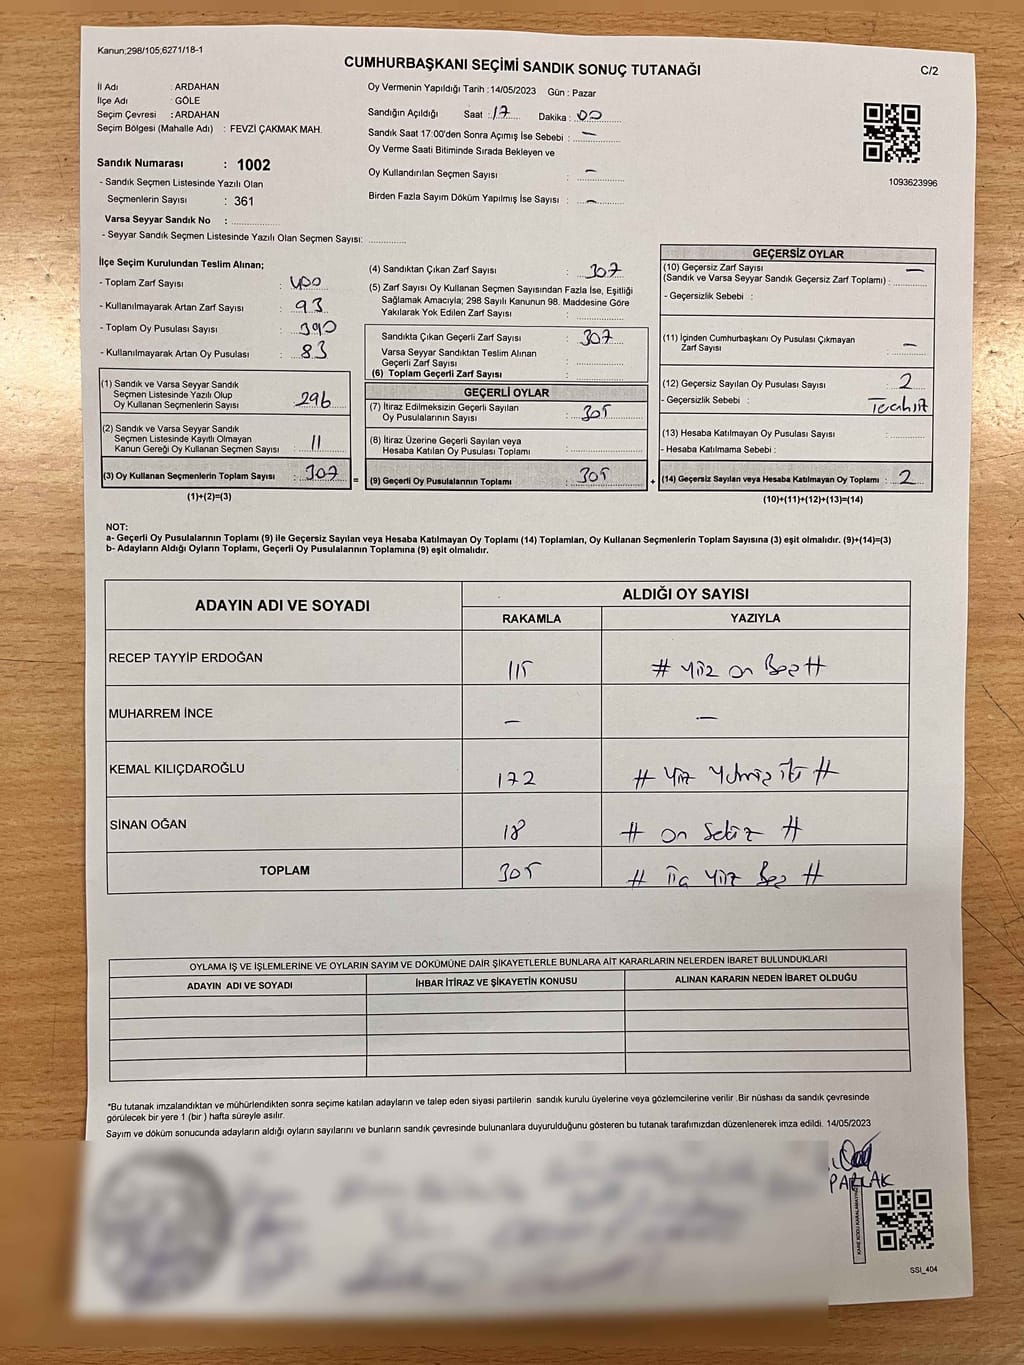 Kanun;298/105;6271/18-1
CUMHURBAŞKANI SEÇİMİ SANDIK SONUÇ TUTANAĞI
C/2
İl Adı : ARDAHAN
İlçe Adı : GÖLE
Seçim Çevresi : ARDAHAN
Seçim Bölgesi (Mahalle Adı) : FEVZİ ÇAKMAK MAH.
Sandık Numarası : 1002
- Sandık Seçmen Listesinde Yazılı Olan
Seçmenlerin Sayısı : 361
Varsa Seyyar Sandık No :
- Seyyar Sandık Seçmen Listesinde Yazılı Olan Seçmen Sayısı:
Oy Vermenin Yapıldığı Tarih : 14/05/2023 Gün : Pazar
Sandığın Açıldığı Saat : 17 Dakika : 00
Sandık Saat 17:00'den Sonra Açımış İse Sebebi : —
Oy Verme Saati Bitiminde Sırada Bekleyen ve
Oy Kullandırılan Seçmen Sayısı : —
Birden Fazla Sayım Döküm Yapılmış İse Sayısı : —
1093623996
İlçe Seçim Kurulundan Teslim Alınan;
- Toplam Zarf Sayısı : 400
- Kullanılmayarak Artan Zarf Sayısı : 93
- Toplam Oy Pusulası Sayısı : 390
- Kullanılmayarak Artan Oy Pusulası : 83
(1) Sandık ve Varsa Seyyar Sandık
Seçmen Listesinde Yazılı Olup
Oy Kullanan Seçmenlerin Sayısı : 296
(2) Sandık ve Varsa Seyyar Sandık
Seçmen Listesinde Kayıtlı Olmayan
Kanun Gereği Oy Kullanan Seçmen Sayısı : 11
(3) Oy Kullanan Seçmenlerin Toplam Sayısı : 307
(1)+(2)=(3)
(4) Sandıktan Çıkan Zarf Sayısı : 307
(5) Zarf Sayısı Oy Kullanan Seçmen Sayısından Fazla İse, Eşitliği
Sağlamak Amacıyla; 298 Sayılı Kanunun 98. Maddesine Göre
Yakılarak Yok Edilen Zarf Sayısı :
Sandıkta Çıkan Geçerli Zarf Sayısı : 307
Varsa Seyyar Sandıktan Teslim Alınan
Geçerli Zarf Sayısı :
(6) Toplam Geçerli Zarf Sayısı :
GEÇERLİ OYLAR
(7) İtiraz Edilmeksizin Geçerli Sayılan
Oy Pusulalarının Sayısı : 305
(8) İtiraz Üzerine Geçerli Sayılan veya
Hesaba Katılan Oy Pusulası Toplamı :
= (9) Geçerli Oy Pusulalarının Toplamı : 305
GEÇERSİZ OYLAR
(10) Geçersiz Zarf Sayısı
(Sandık ve Varsa Seyyar Sandık Geçersiz Zarf Toplamı) : —
- Geçersizlik Sebebi :
(11) İçinden Cumhurbaşkanı Oy Pusulası Çıkmayan
Zarf Sayısı : —
(12) Geçersiz Sayılan Oy Pusulası Sayısı : 2
- Geçersizlik Sebebi :
(13) Hesaba Katılmayan Oy Pusulası Sayısı :
- Hesaba Katılmama Sebebi :
+ (14) Geçersiz Sayılan veya Hesaba Katılmayan Oy Toplamı : 2
(10)+(11)+(12)+(13)=(14)
NOT:
a- Geçerli Oy Pusulalarının Toplamı (9) ile Geçersiz Sayılan veya Hesaba Katılmayan Oy Toplamı (14) Toplamları, Oy Kullanan Seçmenlerin Toplam Sayısına (3) eşit olmalıdır. (9)+(14)=(3)
b- Adayların Aldığı Oyların Toplamı, Geçerli Oy Pusulalarının Toplamına (9) eşit olmalıdır.
ADAYIN ADI VE SOYADI ALDIĞI OY SAYISI
RAKAMLA YAZIYLA
RECEP TAYYİP ERDOĞAN 115 # yüz on Beş #
MUHARREM İNCE — —
KEMAL KILIÇDAROĞLU 172 # yüz yetmiş iki #
SİNAN OĞAN 18 # on sekiz #
TOPLAM 305 # üç yüz Beş #
OYLAMA İŞ VE İŞLEMLERİNE VE OYLARIN SAYIM VE DÖKÜMÜNE DAİR ŞİKAYETLERLE BUNLARA AİT KARARLARIN NELERDEN İBARET BULUNDUKLARI
ADAYIN ADI VE SOYADI İHBAR İTİRAZ VE ŞİKAYETİN KONUSU ALINAN KARARIN NEDEN İBARET OLDUĞU
*Bu tutanak imzalandıktan ve mühürlendikten sonra seçime katılan adayların ve talep eden siyasi partilerin sandık kurulu üyelerine veya gözlemcilerine verilir .Bir nüshası da sandık çevresinde
görülecek bir yere 1 (bir ) hafta süreyle asılır.
Sayım ve döküm sonucunda adayların aldığı oyların sayılarını ve bunların sandık çevresinde bulunanlara duyurulduğunu gösteren bu tutanak tarafımızdan düzenlenerek imza edildi. 14/05/2023
PARLAK
KARE KODU KARALAMAYINIZ
SSI_404